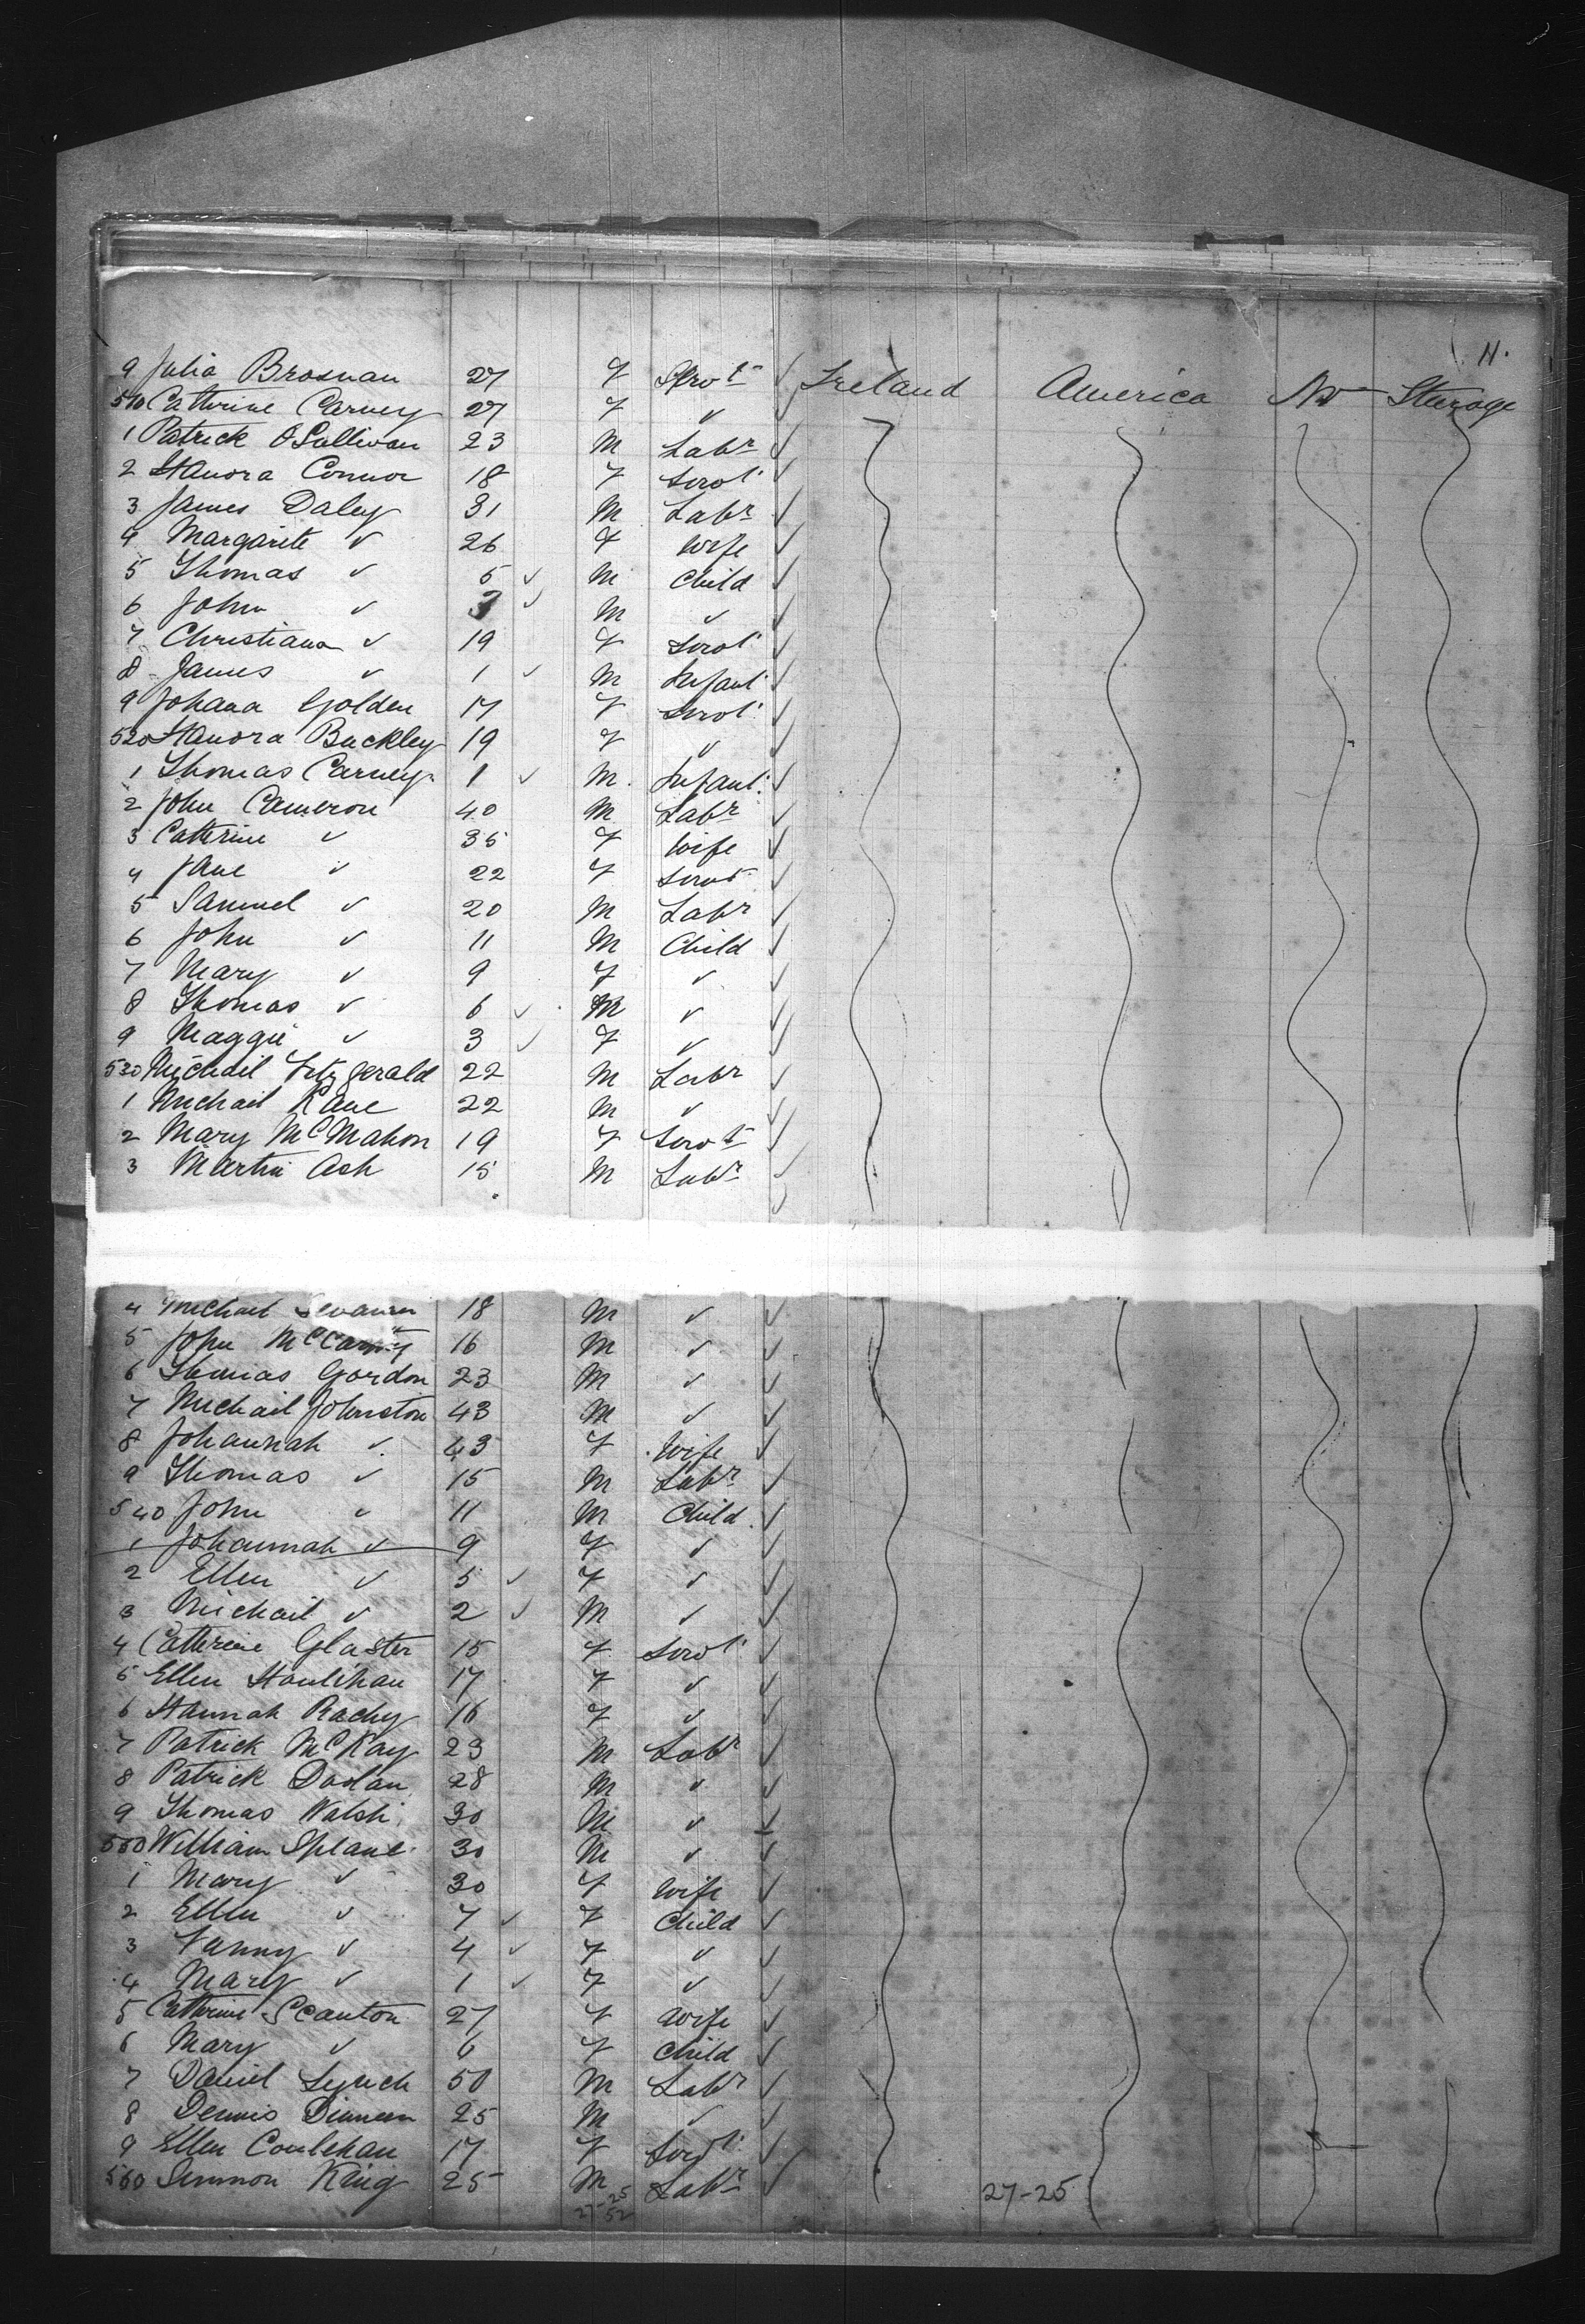 11.
9 Julia Brosnan 27 F Servt ✓ Ireland America No Sterage
510 Cathrine Carney 27 F ✓ ✓
1 Patrick O'Sullivan 23 M Labr ✓
2 Hanora Connor 18 F Servt ✓
3 James Daley 31 M Labr ✓
4 Margarite ✓ 26 F Wife ✓
5 Thomas ✓ 5 ✓ M Child ✓
6 John ✓ 3 ✓ M ✓ ✓
7 Christiana ✓ 19 F Servt ✓
8 James ✓ 1 ✓ M Infant ✓
9 Johana Golden 17 F Servt ✓
520 Hanora Buckley 19 F ✓ ✓
1 Thomas Carney 1 ✓ M Infant ✓
2 John Cameron 40 M Labr ✓
3 Cathrine ✓ 35 F Wife ✓
4 Jane ✓ 22 F Servt ✓
5 Samuel ✓ 20 M Labr ✓
6 John ✓ 11 M Child ✓
7 Mary ✓ 9 F ✓ ✓
8 Thomas ✓ 6 ✓ M ✓ ✓
9 Maggie ✓ 3 ✓ F ✓ ✓
530 Michail Fitzgerald 22 M Labr ✓
1 Michail Kane 22 M ✓ ✓
2 Mary McMahon 19 F Servt ✓
3 Martin Ash 15 M Labr ✓
4 Michail 18 M ✓ ✓
5 John 16 M ✓ ✓
6 Thomas Gordon 23 M ✓ ✓
7 Michail Johnston 43 M ✓ ✓
8 Johannah ✓ 43 F Wife ✓
9 Thomas ✓ 15 M Labr ✓
540 John ✓ 11 M Child ✓
1 Johannah ✓ 9 F ✓ ✓
2 Ellen ✓ 5 ✓ F ✓ ✓
3 Michail ✓ 2 ✓ M ✓ ✓
4 Cathrine Glaster 15 F Servt ✓
5 Ellen Houlihan 17 F ✓ ✓
6 Hannah Rachy 16 F ✓ ✓
7 Patrick McKay 23 M Labr ✓
8 Patrick Doolan 28 M ✓ ✓
9 Thomas Walsh 30 M ✓ ✓
550 William Splane 30 M ✓ ✓
1 Mary ✓ 30 F Wife ✓
2 Ellen ✓ 7 ✓ F Child ✓
3 Fanny ✓ 4 ✓ F ✓ ✓
4 Mary ✓ 1 ✓ F ✓ ✓
5 Cathrine Scanton 27 F Wife ✓
6 Mary ✓ 6 F Child ✓
7 Daniel Lynch 50 M Labr ✓
8 Dennis Dinneen 25 M ✓ ✓
9 Ellen Coulehan 17 F Servt ✓
560 Simmon King 25 M Labr ✓
27-25 27-25
52